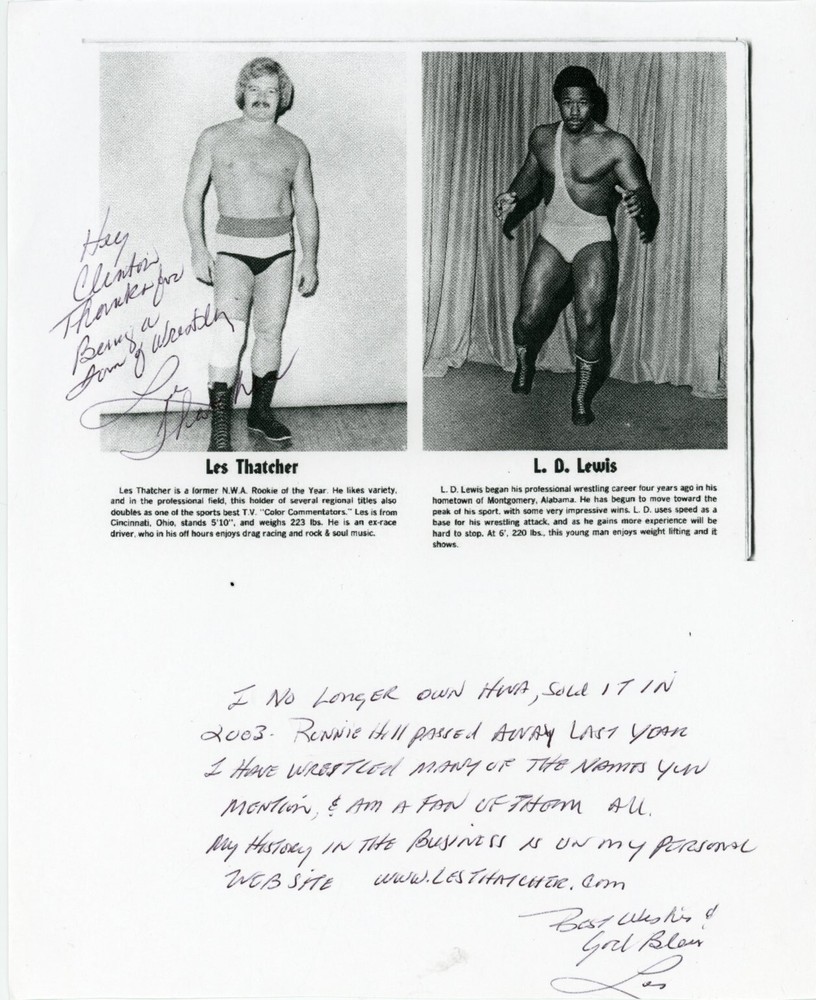 Hey
Clinton
Thanks for
Being a
fan of Wrestling
Les
Thatcher
Les Thatcher
Les Thatcher is a former N.W.A. Rookie of the Year. He likes variety,
and in the professional field, this holder of several regional titles also
doubles as one of the sports best T.V. "Color Commentators." Les is from
Cincinnati, Ohio, stands 5'10", and weighs 223 lbs. He is an ex-race
driver, who in his off hours enjoys drag racing and rock & soul music.
L. D. Lewis
L. D. Lewis began his professional wrestling career four years ago in his
hometown of Montgomery, Alabama. He has begun to move toward the
peak of his sport, with some very impressive wins. L. D. uses speed as a
base for his wrestling attack, and as he gains more experience will be
hard to stop. At 6', 220 lbs., this young man enjoys weight lifting and it
shows.
I NO LONGER OWN HWA, SOLD IT IN
2003. RONNIE Hill PASSED AWAY LAST YEAR
I HAVE WRESTLED MANY OF THE NAMES YOU
MENTION, & AM A FAN OF THEM ALL.
MY HISTORY IN THE BUSINESS IS ON MY PERSONAL
WEB SITE WWW.LESTHATCHER.COM
Best Wishes &
God Bless
Les